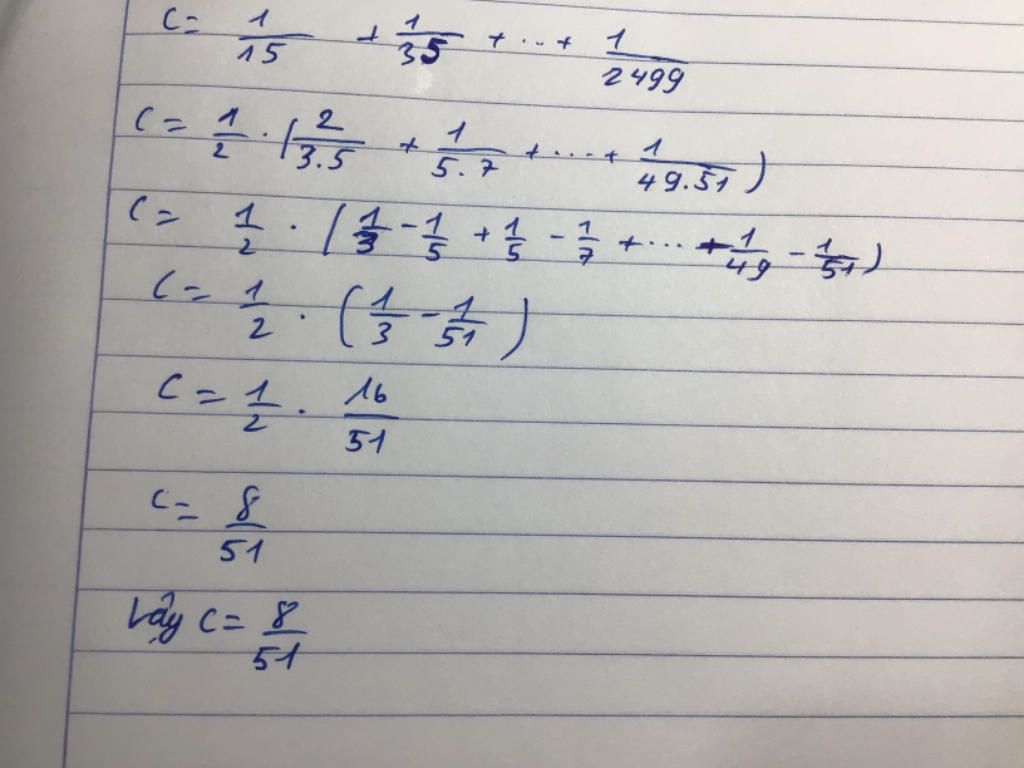 C = 1/15 + 1/35 + ... + 1/2499
C = 1/2 . (2/3.5 + 1/5.7 + ... + 1/49.51)
C = 1/2 . (1/3 - 1/5 + 1/5 - 1/7 + ... + 1/49 - 1/51)
C = 1/2 . (1/3 - 1/51)
C = 1/2 . 16/51
C = 8/51
Vậy C = 8/51